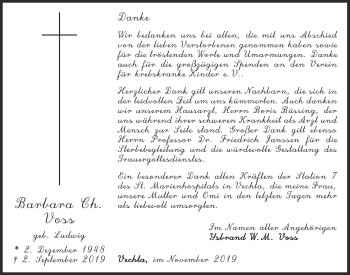 Danke
Wir bedanken uns bei allen, die mit uns Abschied
von der lieben Verstorbenen genommen haben sowie
für die tröstenden Worte und Umarmungen. Danke
auch für die großzügigen Spenden an den Verein
für krebskranke Kinder e. V..
Herzlicher Dank gilt unseren Nachbarn, die sich in
der leidvollen Zeit um uns kümmerten. Auch danken
wir unserem Hausarzt, Herrn Boris Büssing, der
uns während ihrer schweren Krankheit als Arzt und
Mensch zur Seite stand. Großer Dank gilt ebenso
Herrn Professor Dr. Friedrich Janssen für die
Sterbebegleitung und die würdevolle Gestaltung des
Trauergottesdienstes.
Ein besonderer Dank allen Kräften der Station 7
des St. Marienhospitals in Vechta, die meine Frau,
unsere Mutter und Omi in den letzten Tagen mehr
als liebevoll umsorgten.
Im Namen aller Angehörigen
Ysbrand W.M. Voss
Barbara Ch.
Voss
geb. Ludwig
* 2. Dezember 1948
† 2. September 2019
Vechta, im November 2019